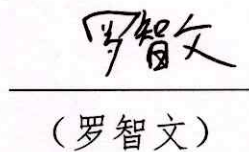 罗智文
(罗智文)